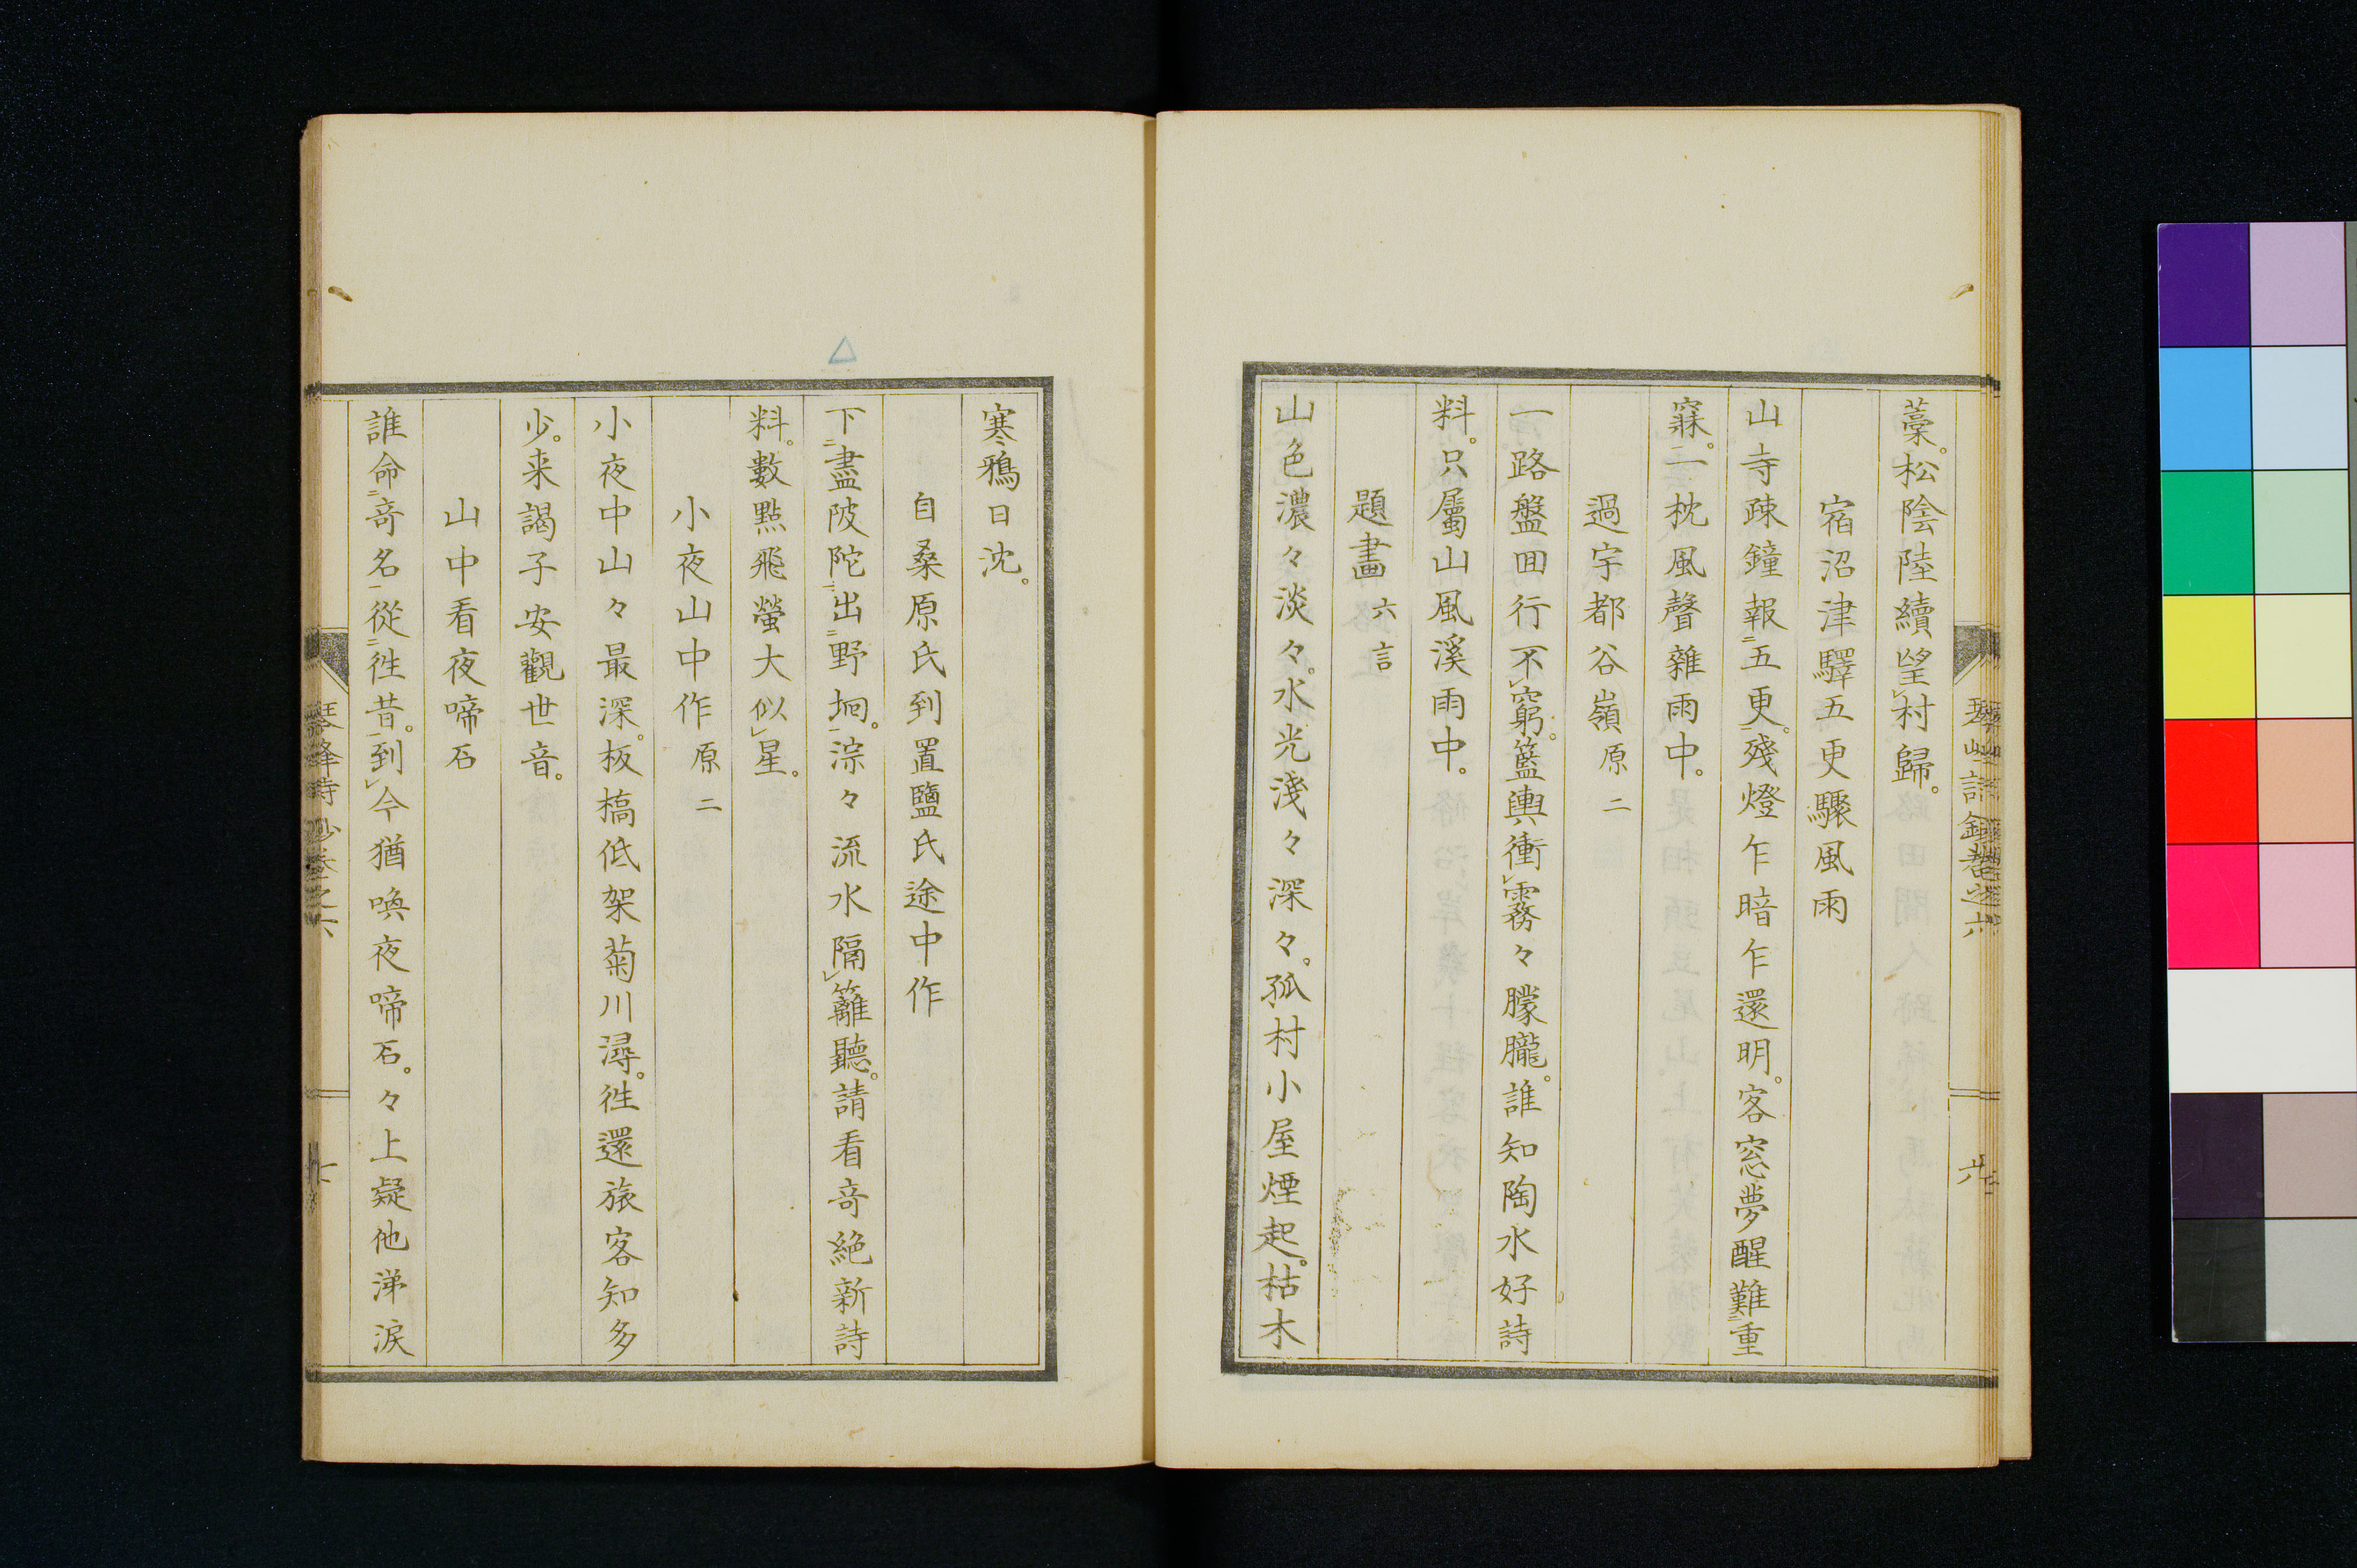 藁。松陰陸續望村歸。
宿沼津驛五更驟風雨
山寺疎鐘報五更。殘燈乍暗乍還明。客窓夢醒難重
寐。一枕風聲雜雨中。
過宇都谷嶺 原二
一路盤回行不窮。籃輿衝霧々朦朧。誰知陶水好詩
料。只屬山風溪雨中。
題畫 六言
山色濃々淡々。水光淺々深々。孤村小屋煙起。枯木
寒鴉日沈。
自桑原氏到置鹽氏途中作
下盡陂陀出野坰。淙々流水隔籬聽。請看奇絶新詩
料。數點飛螢大似星。
小夜山中作 原二
小夜中山々最深。板橋低架菊川潯。徃還旅客知多
少。来謁子安觀世音。
山中看夜啼石
誰命奇名從徃昔。到今猶喚夜啼石。々上疑他涕涙